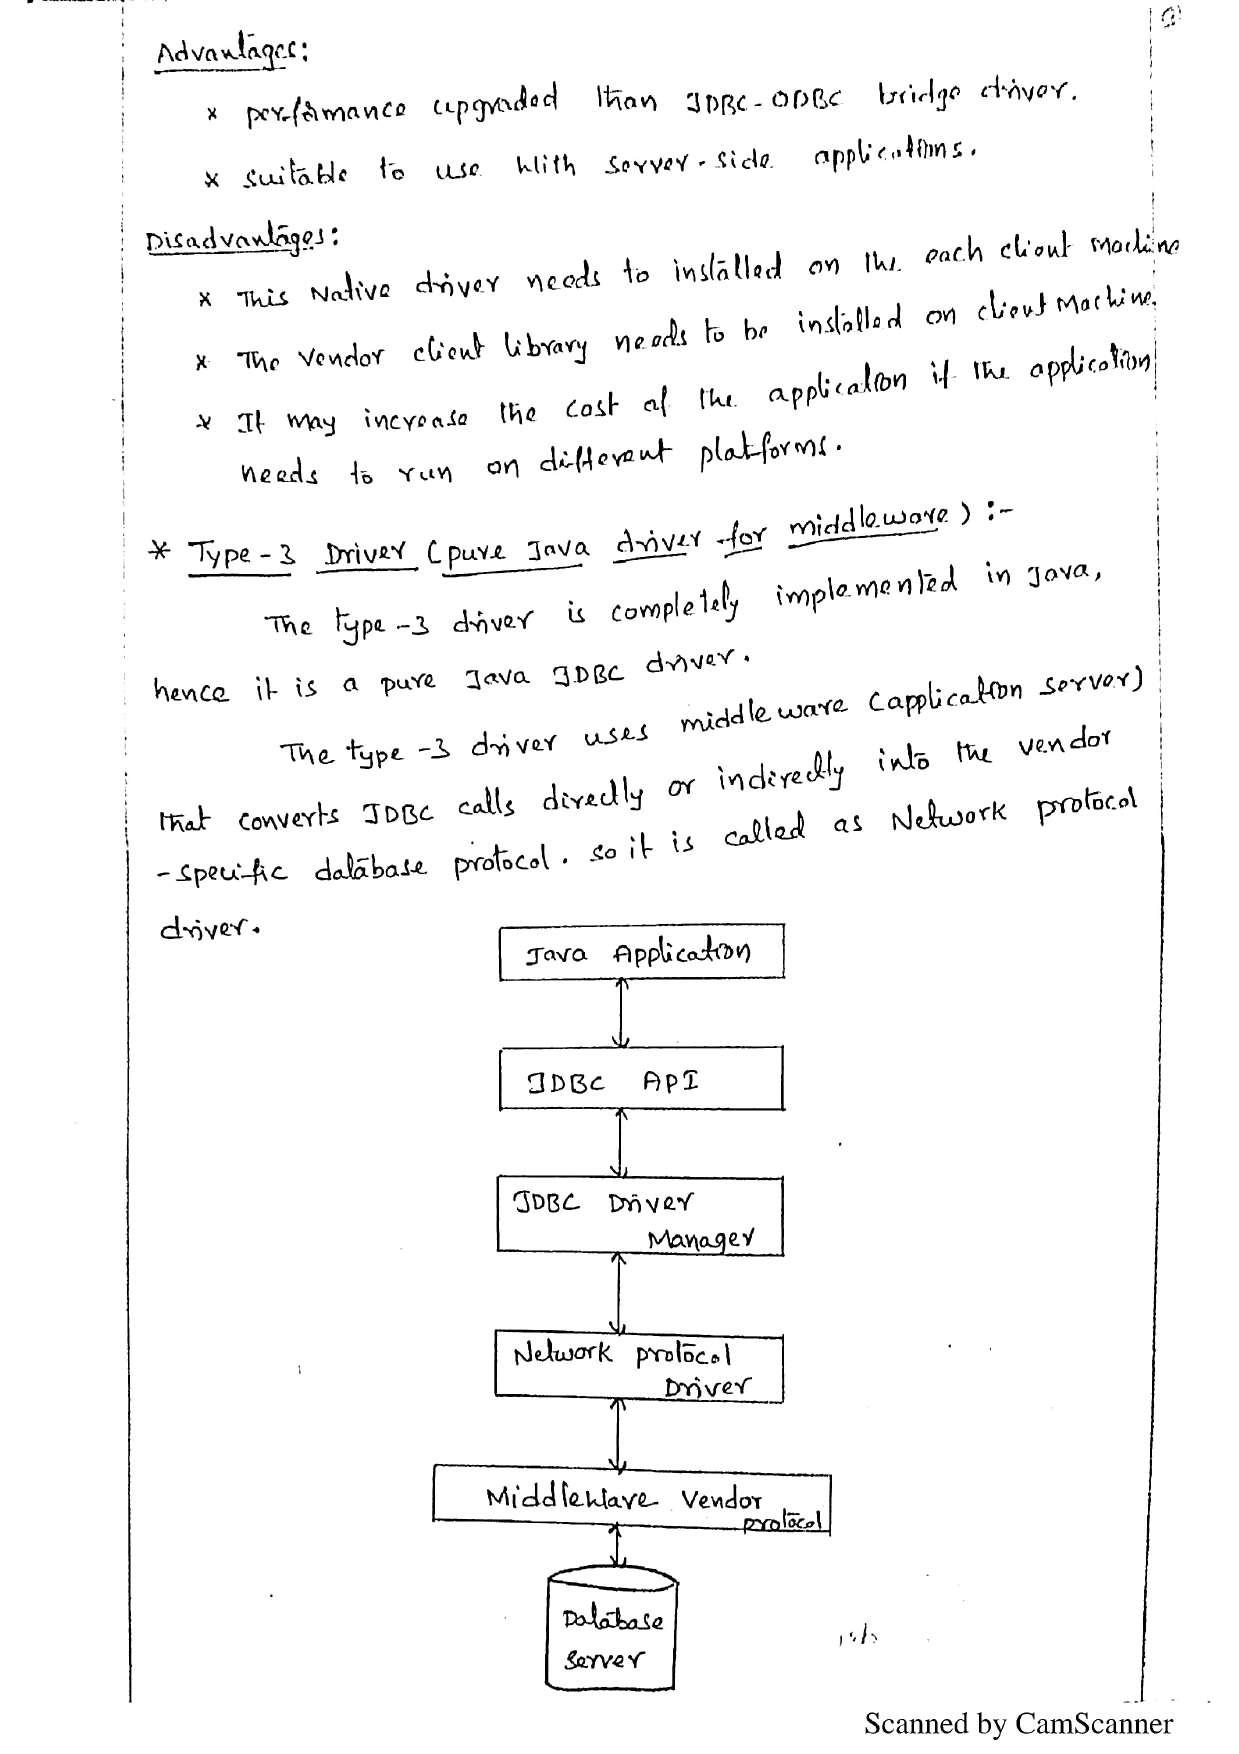 Advantages:
* performance upgraded than JDBC-ODBC bridge driver.
* suitable to use With server-side applications.
Disadvantages:
* This Native driver needs to installed on the each client machine
* The Vendor client library needs to be installed on client Machine.
* It may increase the cost of the application if the application
needs to run on different platforms.
* Type-3 Driver (pure Java driver for middleware) :-
The type-3 driver is completely implemented in Java,
hence it is a pure Java JDBC driver.
The type-3 driver uses middleware (application server)
that converts JDBC calls directly or indirectly into the vendor
-specific database protocol. so it is called as Network protocol
driver.
Java Application
JDBC API
JDBC Driver
Manager
Network protocol
Driver
MiddleWare Vendor
protocol
Database
Server
Scanned by CamScanner